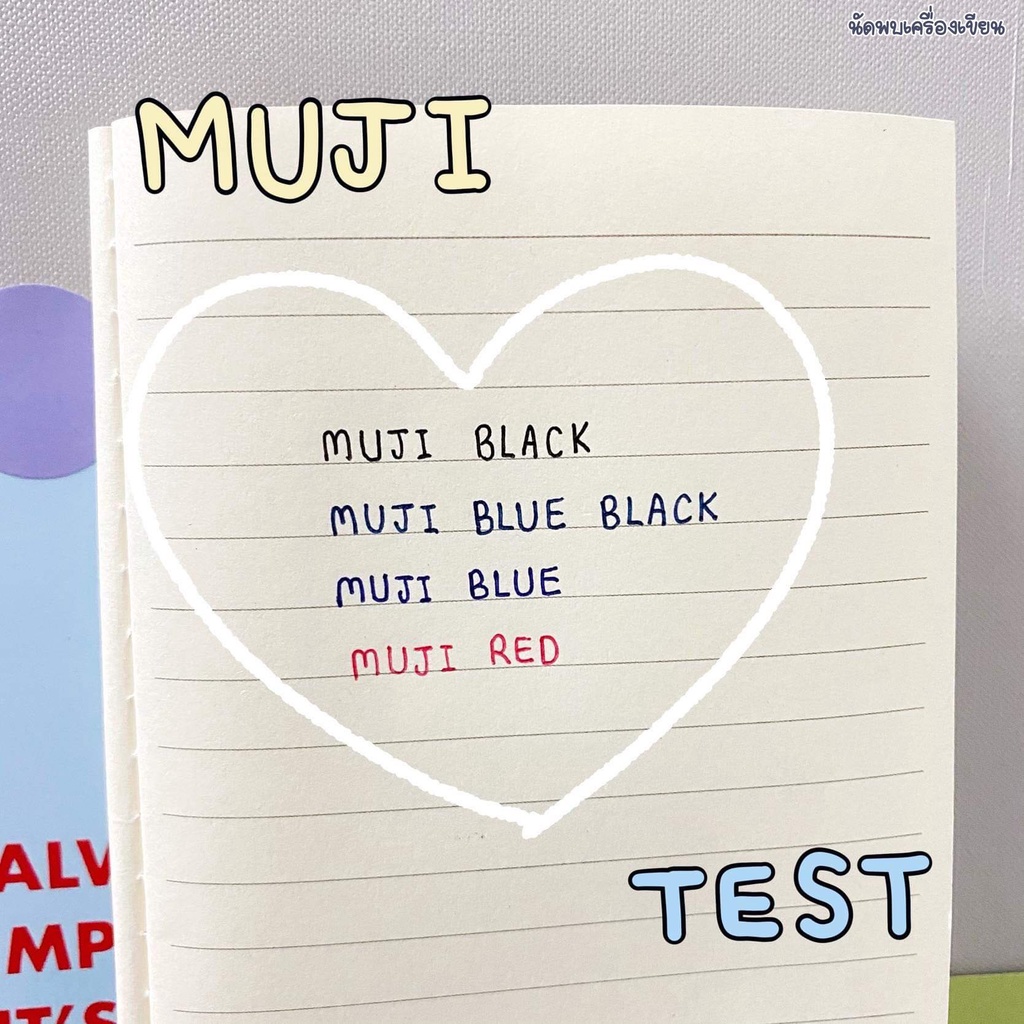 นัดพบเครื่องเขียน
MUJI
MUJI BLACK
MUJI BLUE BLACK
MUJI BLUE
MUJI RED
TEST
ALV
MP
IT'S